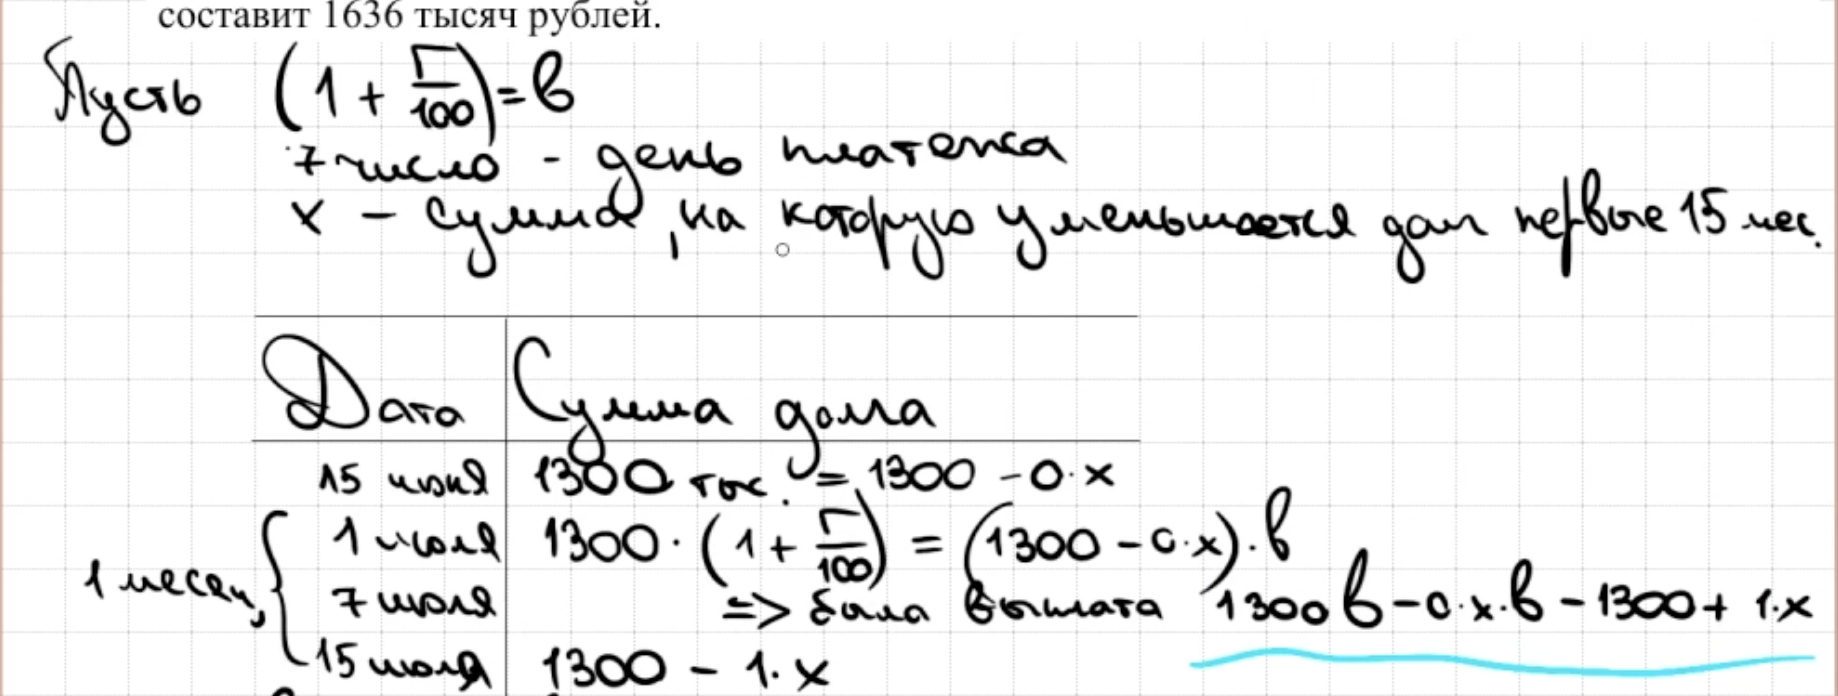 составит 1636 тысяч рублей.
Пусть (1 + r/100) = b
7 число - день платежа
x - сумма, на которую уменьшается долг первые 15 мес.
Дата Сумма долга
15 июня 1300 тыс. = 1300 - 0·x
1 июля 1300·(1 + r/100) = (1300 - 0·x)·b
1 месяц 7 июля => была выплата 1300b - 0·x·b - 1300 + 1·x
15 июля 1300 - 1·x